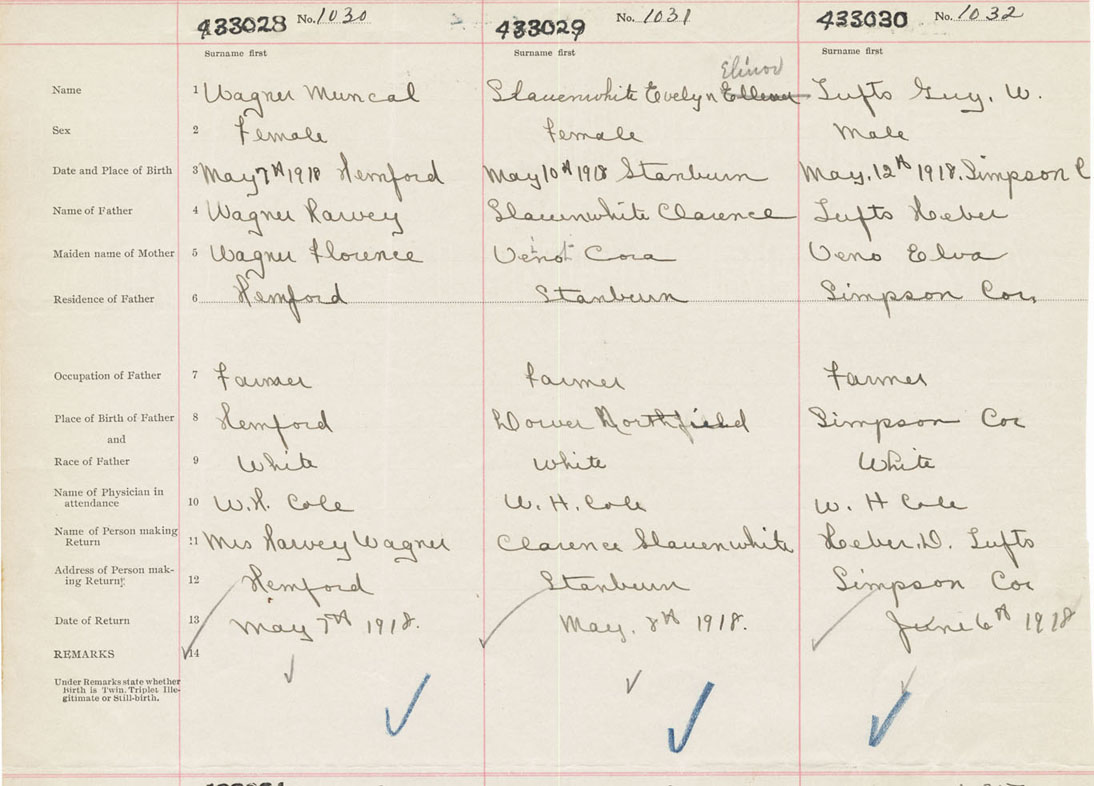 433028 No. 1030 433029 No. 1031 433030 No. 1032
Surname first Surname first Surname first
Elinor
Name 1 Wagner Muncal Slauenwhite Evelyn Tufts Guy. W.
Sex 2 Female Female Male
Date and Place of Birth 3 May 7th 1918 Hemford May 10th 1918 Stanburn May. 12th 1918. Simpson C
Name of Father 4 Wagner Harvey Slauenwhite Clarence Tufts Heber
Maiden name of Mother 5 Wagner Florence Veinot Cora Veno Elva
Residence of Father 6 Hemford Stanburn Simpson Cor.
Occupation of Father 7 Farmer Farmer Farmer
Place of Birth of Father 8 Hemford Lower Northfield Simpson Cor
and
Race of Father 9 White White White
Name of Physician in
attendance 10 W. H. Cole W. H. Cole W. H Cole
Name of Person making
Return 11 Mrs Harvey Wagner Clarence Slauenwhite Heber. D. Tufts
Address of Person mak-
ing Return 12 Hemford Stanburn Simpson Cor
Date of Return 13 May 7th 1918. May. 8th 1918. June 6th 1918
REMARKS 14
Under Remarks state whether
Birth is Twin, Triplet Ille-
gitimate or Still-birth.